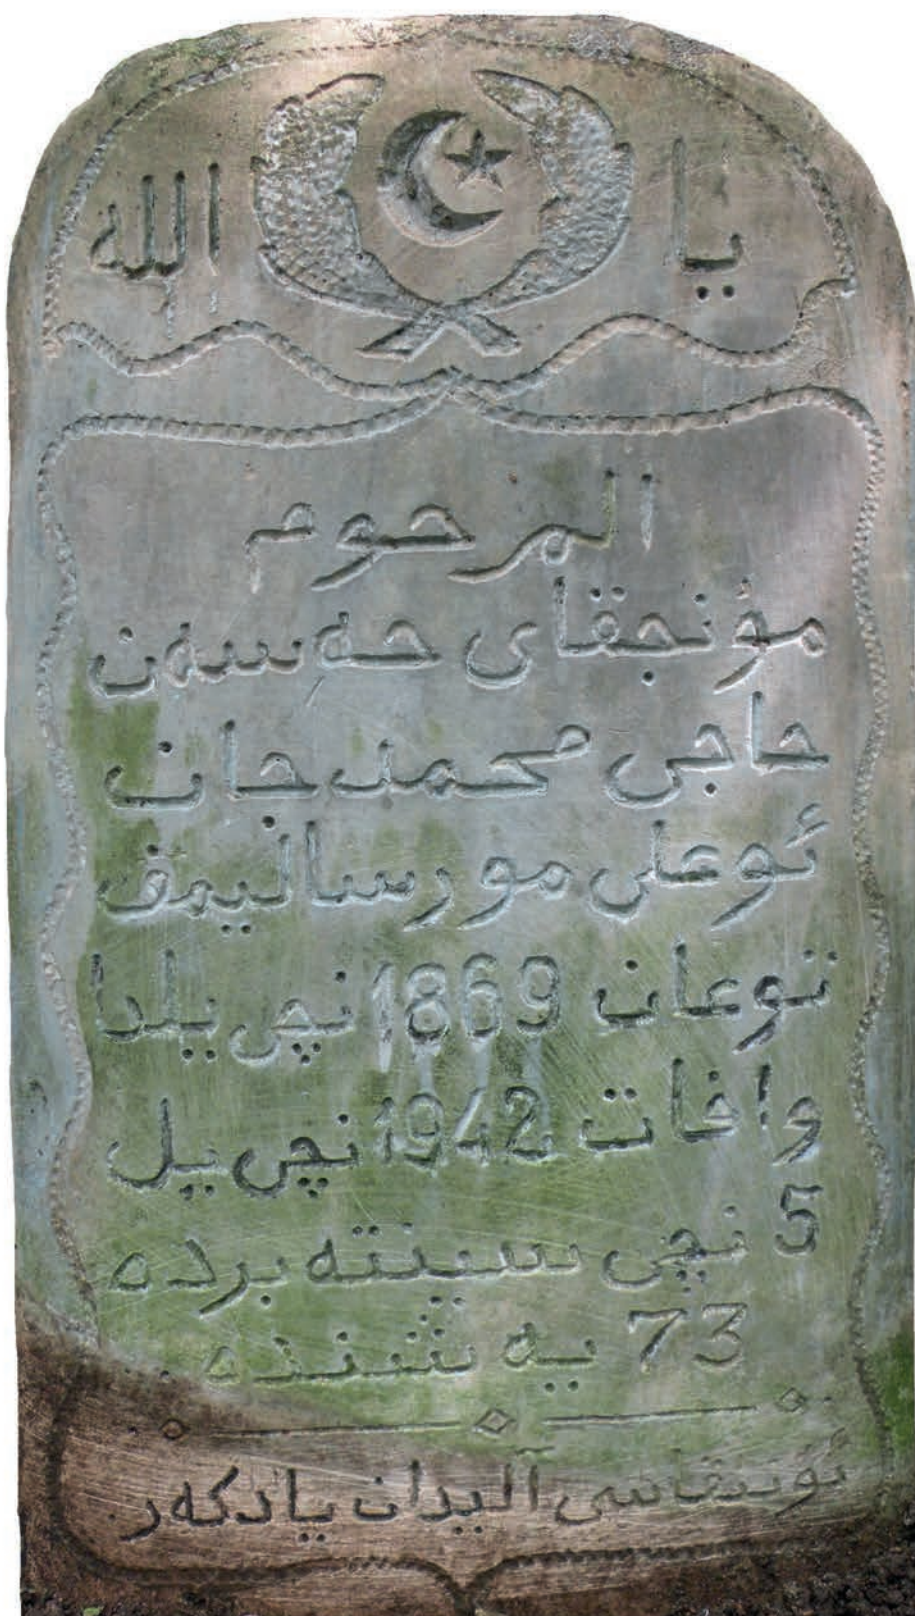 يا الله
المرحوم
مؤنجقاى حەسەن
حاجى محمد جان
ئوعلى مورساليمف
توعان 1869 نچى يلدا
وافات 1942 نچى يل
5 نچى سينتەبردە
73 يەشندە.
آليدان يادكەر